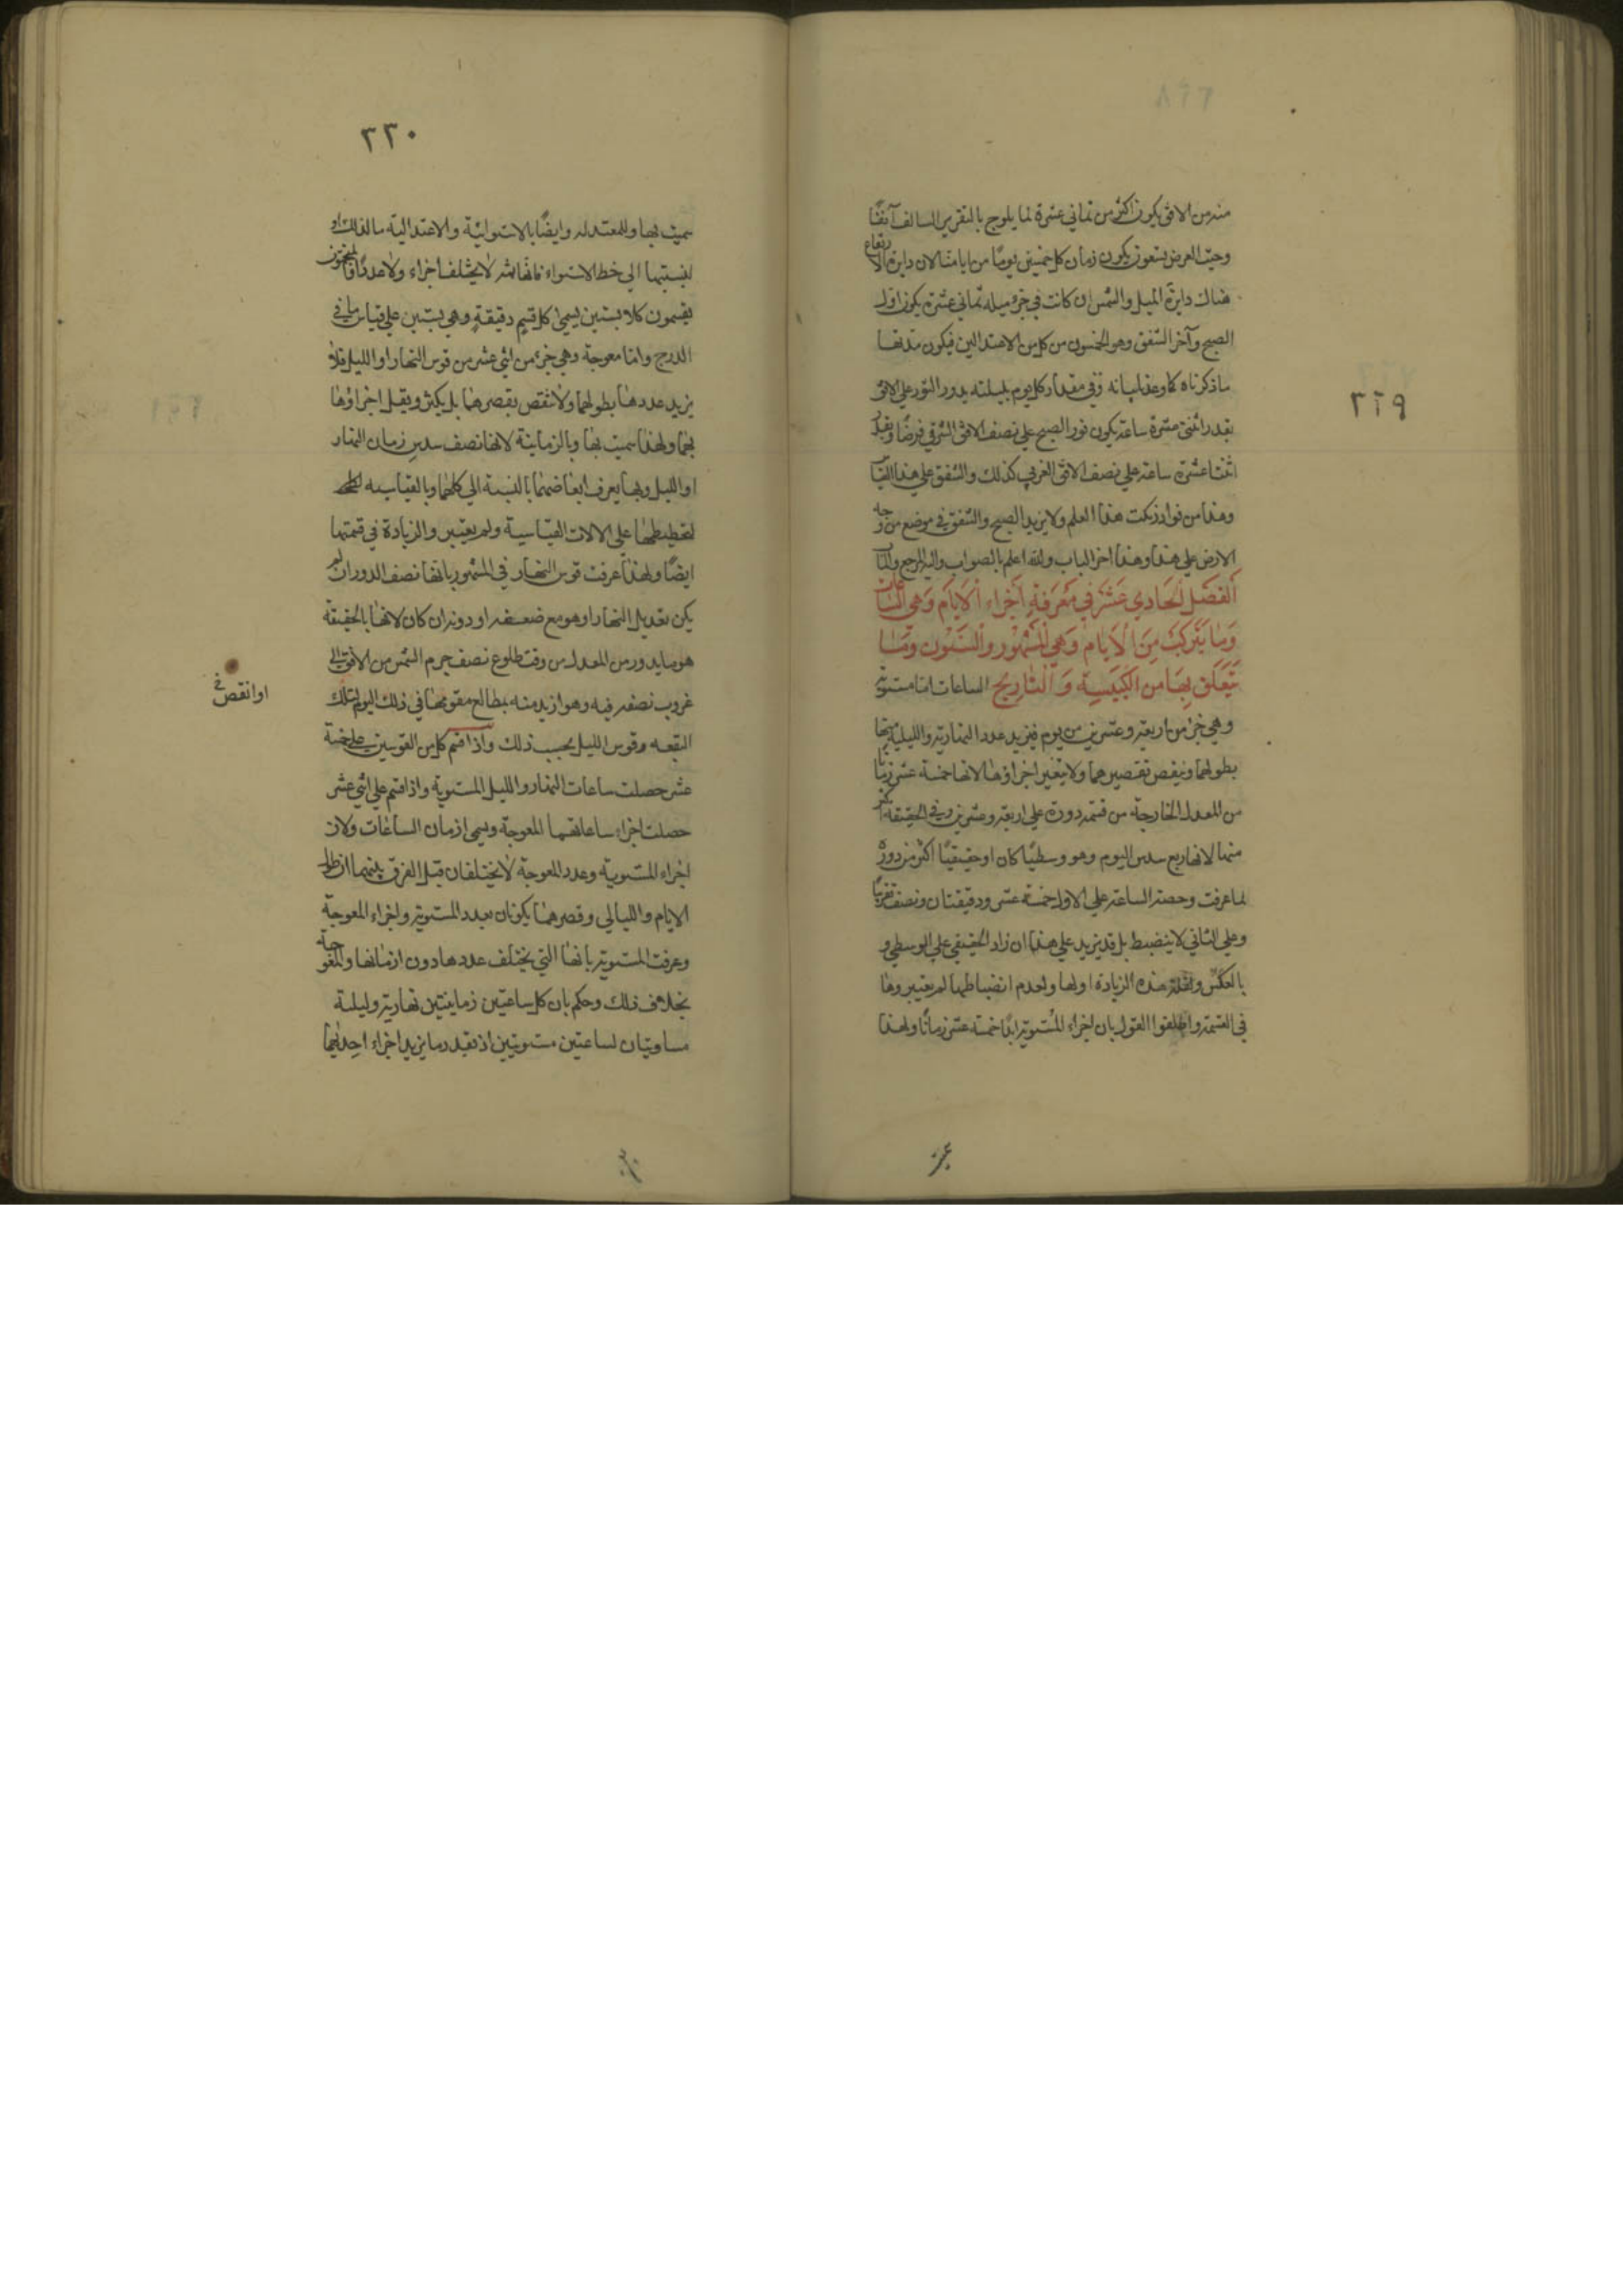 ٣٢٩
منه من الافق يكون اكثر من ثماني عشرة لما يلوح بالتقرير السالف آنفًا
وحيث العرض تسعون يكون زمان كل خمسين يومًا من ايامنا لان دايرة الارتفاع
هناك دايرة الميل والشمس ان كانت في جزء ميله ثماني عشرة يكون اول
الصبح وآخر الشفق وهو الخمسون من كل من الاعتدالين فيكون مدتهما
ما ذكرناه كما وعدنا بيانه وفي مقدار كل يوم بليلته يدور النور على الافق
بقدر اثنتي عشرة ساعة يكون نور الصبح على نصف الافق الشرقي فرضًا وبقدر
اثنتا عشرة ساعة على نصف الافق الغربي كذلك والشفق على هذا القياس
وهذا من نوادر نكت هذا العلم ولا يزيد الصبح والشفق في موضع من وجه
الارض على هذا وهذا اخر الباب والله اعلم بالصواب واليه المرجع والمآب
الفصل الحادي عشر في معرفة اجزاء الايام وهي الساعات
وما يتركب من الايام وهي الشهور والسنون وما
يتعلق بها من الكبيسة والتاريخ الساعات اما مستوية
وهي جزء من اربعة وعشرين من يوم فيزيد عدد النهارية والليلية منها
بطولهما وينقص بقصرهما ولا يتغير اجزاؤها لانها خمسة عشر زمانا
من المعدل الخارجة من قسمة دورة على اربعة وعشرين وفي الحقيقة اكثر
منها لانها ربع سدس اليوم وهو وسطيًا كان او حقيقيًا اكثر من دورة
لما عرفت وحصة الساعة على الاول خمسة عشر ودقيقتان ونصف تقريبًا
وعلى الثاني لا ينضبط بل قد يزيد على هذا ان زاد الحقيقي على الوسطي و
بالعكس ولقلة هذه الزيادة اولها ولعدم انضباطها لم يعتبروها
في القسمة واطلقوا القول بان اجزاء المستوية ابدًا خمسة عشر زمانًا ولهذا
٣٣٠
سميت بها وبالمعتدلة وايضًا بالاستوائية والاعتدالية
لنسبتها الى خط الاستواء فانها ثمه لا يختلف اجزاء ولا عددًا والمنجمون
يقسمون كلا بستين يسمى كل قسم دقيقة وهي بستين على قياس ما في
الدرج واما معوجة وهي جزء من اثني عشر من قوس النهار او الليل فلا
يزيد عددها بطولهما ولا ينقص بقصرهما بل يكثر ويقل اجزاؤها
بهما ولهذا سميت بها وبالزمانية لانها نصف سدس زمان النهار
او الليل وبها يعرف ابعاضهما بالنسبة الى كلهما وبالقياسية
لتخطيطها على الالات القياسية ولم يعتبر والزيادة في قسمتها
ايضًا ولهذا عرفت قوس النهار في المشهور بانها نصف الدور ان لم
يكن تعديل النهار او هو مع ضعفه او دونه ان كان لانها بالحقيقة
هو ما يدور من المعدل من وقت طلوع نصف جرم الشمس من الافق الى
غروب نصفه فيه وهو ازيد منه بمطالع مقومها في ذلك اليوم لتلك
او انقص
البقعه وقوس الليل بحسب ذلك واذا قسم كل من القوسين على خمسة
عشر حصلت ساعات النهار والليل المستوية واذا قسم على اثني عشر
حصلت اجزاء ساعاتهما المعوجة ويسمى ازمان الساعات ولان
اجزاء المستوية وعدد المعوجة لا يختلفان قيل الفرق بينهما ان طول
الايام والليالي وقصرهما يكونان بعدد المستوية واجزاء المعوجة
وعرفت المستوية بانها التي يختلف عددها دون ازمانها والمعوجة
بخلاف ذلك وحكم بان كل ساعتين زمانيتين نهارية وليلية
مساويتان لساعتين مستويتين اذ بقدر ما يزيد اجزاء احديهما